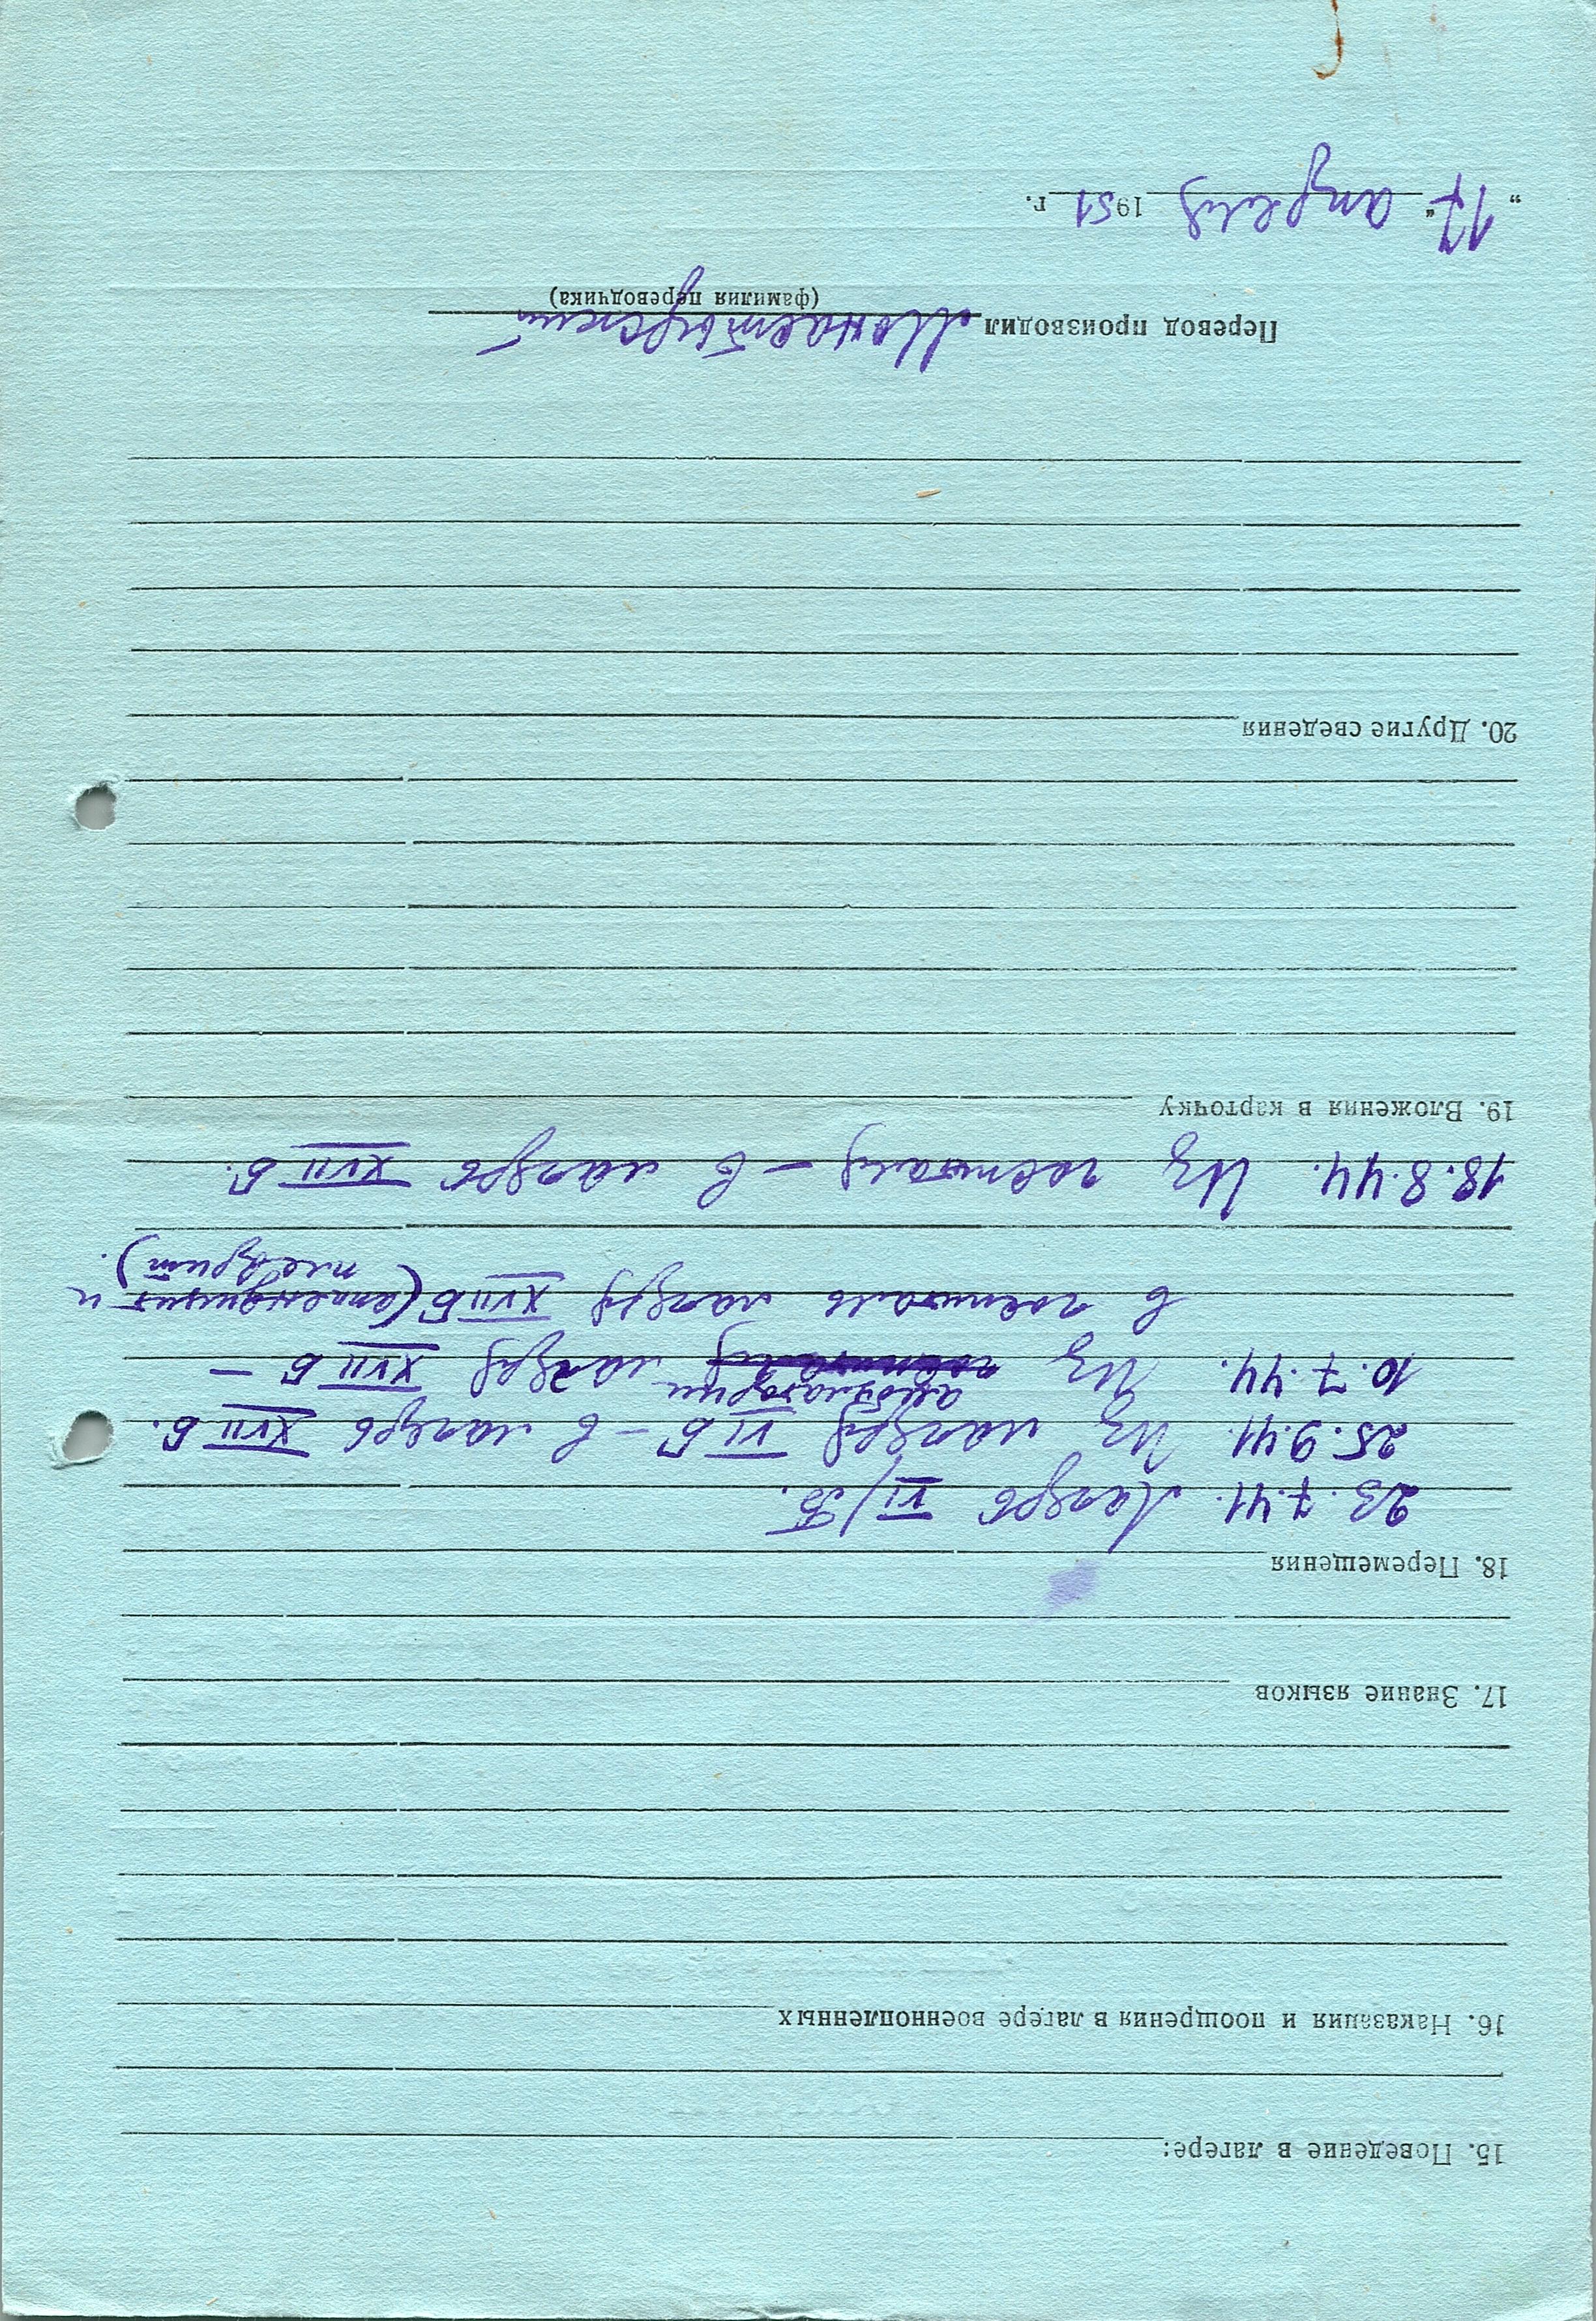 15. Поведение в лагере:
16. Наказания и поощрения в лагере военнопленных
17. Знание языков
18. Перемещения
23.7.41. Лагерь VI/Б.
25.9.41. Из лагеря VI Б – в лагерь XVII Б.
амбулатории
10.7.44. Из госпиталя лагеря XVII Б –
в госпиталь лагеря XVII Б (аппендицит и
плеврит).
18.8.44. Из госпиталя – в лагерь XVII Б.
19. Вложения в карточку
20. Другие сведения
Перевод производил Монастырский
(фамилия переводчика)
"17" апреля 1951 г.